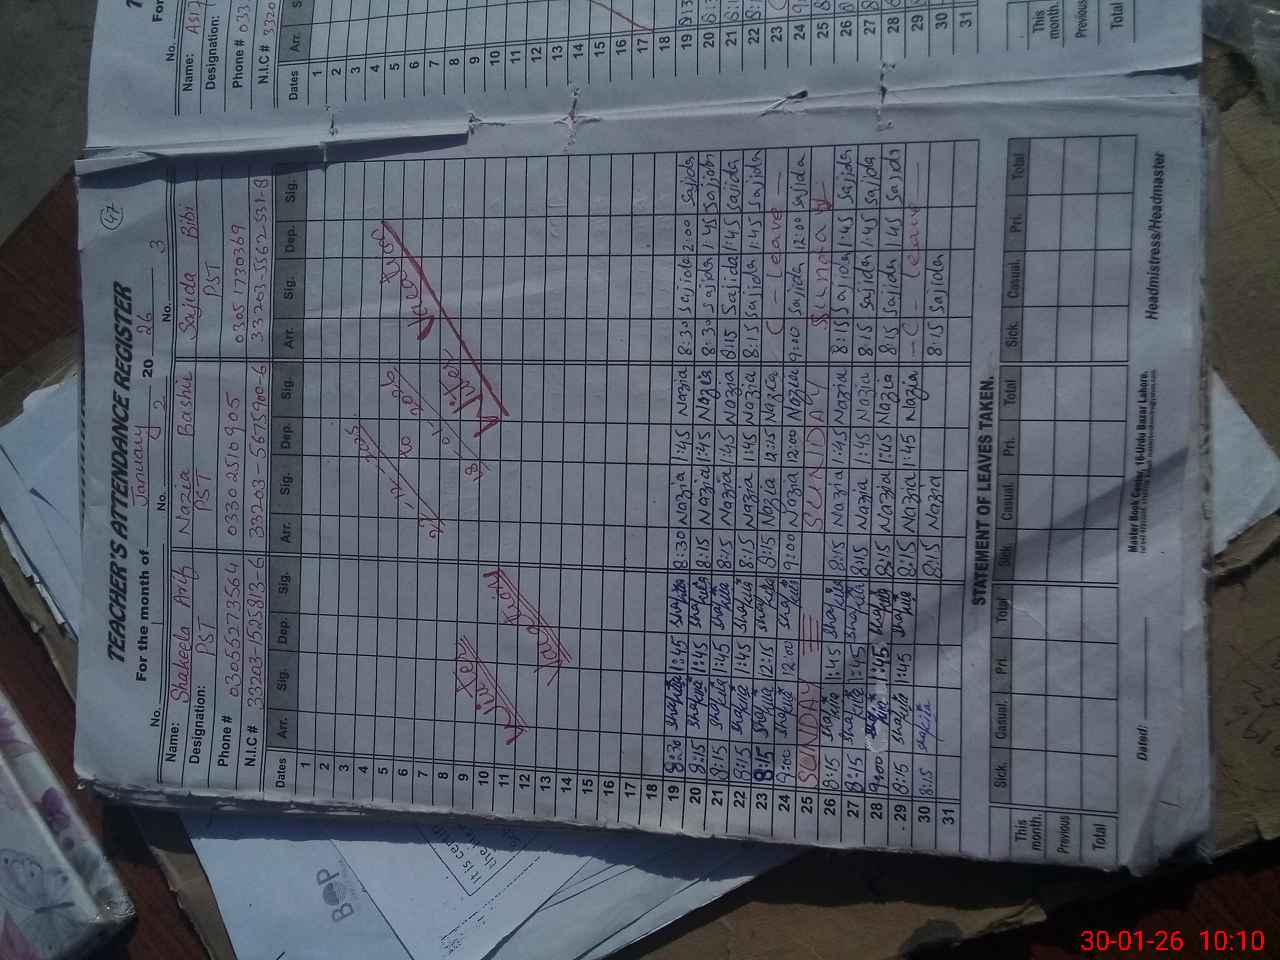 47
TEACHER'S ATTENDANCE REGISTER
For the month of January 20 26
No. 1 No. 2 No. 3
Name: Shakeela Arif Nazia Bashir Sajida Bibi
Designation: PST PST PST
Phone # 03055273564 03302510905 0305 1730369
N.I.C # 33203-1525813-6 33203-5675900-6 33203-5562551-8
Dates Arr. Sig. Dep. Sig. Arr. Sig. Dep. Sig. Arr. Sig. Dep. Sig.
1
2
3
4
5
6
7
8
9
10
11
12
13
14
15
16
17
18
Winter Vacation
2025 to 2026
Winter Vacation
19 8:30 Shakeela 1:45 Shakeela 8:30 Nazia 1:45 Nazia 8:30 Sajida 2:00 Sajida
20 8:15 Shakeela 1:45 Shakeela 8:15 Nazia 1:45 Nazia 8:30 Sajida 1:45 Sajida
21 8:15 Shakeela 1:45 Shakeela 8:15 Nazia 1:45 Nazia 8:15 Sajida 1:45 Sajida
22 8:15 Shakeela 1:45 Shakeela 8:15 Nazia 1:45 Nazia 8:15 Sajida 1:45 Sajida
23 8:15 Shakeela 12:15 Shakeela 8:15 Nazia 12:15 Nazia C - Leave
24 9:00 Shakeela 12:00 Shakeela 9:00 Nazia 12:00 Nazia 9:00 Sajida 12:00 Sajida
25 SUNDAY SUNDAY SUNDAY
26 8:15 Shakeela 1:45 Shakeela 8:15 Nazia 1:45 Nazia 8:15 Sajida 1:45 Sajida
27 8:15 Shakeela 1:45 Shakeela 8:15 Nazia 1:45 Nazia 8:15 Sajida 1:45 Sajida
28 9:00 1:45 Shakeela 8:15 Nazia 1:45 Nazia 8:15 Sajida 1:45 Sajida
29 8:15 Shakeela 1:45 Shakeela 8:15 Nazia 1:45 Nazia C - Leave
30 8:15 Shakeela 8:15 Nazia 8:15 Sajida
31
STATEMENT OF LEAVES TAKEN.
Sick. Casual. Pri. Total Sick Casual. Pri. Total Sick. Casual. Pri. Total
This month.
Previous
Total
Dated:
Master Book Center, 16-Urdu Bazar Lahore.
Headmistress/Headmaster
No.
Name:
Designation:
Phone # 033
N.I.C # 3320
Dates Arr.
1
2
3
4
5
6
7
8
9
10
11
12
13
14
15
16
17
18
19
20
21
22
23
24
25
26
27
28
29
30
31
This month.
Previous
Total
BOP
It is
30-01-26 10:10